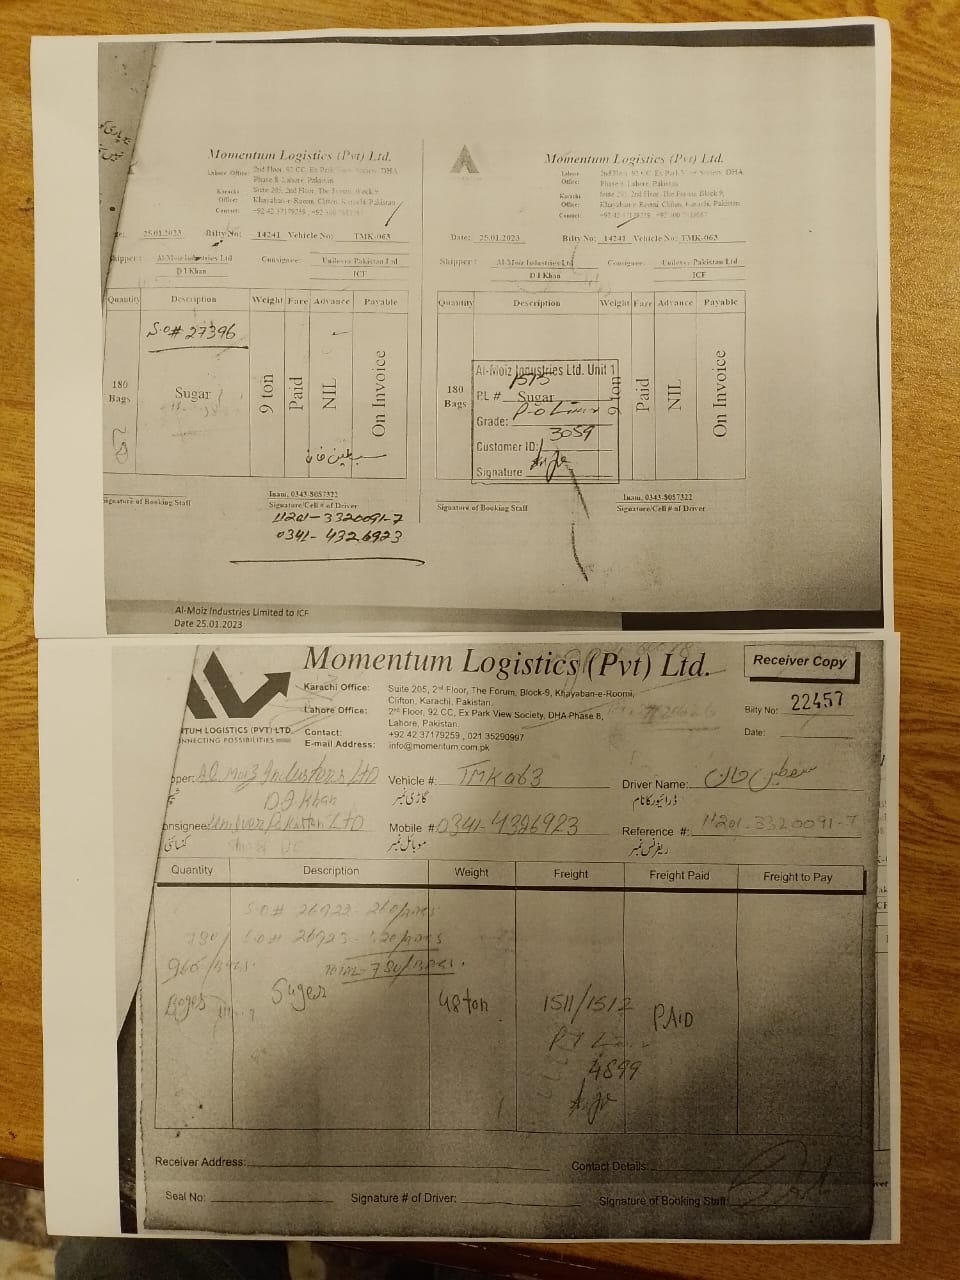 Momentum Logistics (Pvt) Ltd.
Lahore Office: 2nd Floor, 92 CC, Ex Park View Society, DHA
Phase 8, Lahore, Pakistan
Karachi Office: Suite 205, 2nd Floor, The Forum, Block 9,
Khayaban-e-Roomi, Clifton, Karachi, Pakistan
Contact: +92 42 37179259
25.01.2023 Bilty No: 14241 Vehicle No: TMK-063
Shipper: Al-Moiz Industries Ltd Consignee: Unilever Pakistan Ltd
D I Khan ICF
Quantity Description Weight Fare Advance Payable
S.O# 27396
180 Bags Sugar 9 ton Paid NIL On Invoice
سبطین خان
Signature of Booking Staff
Inam, 0343-8057322
Signature/Cell # of Driver
11201-3320091-7
0341-4326923
Momentum Logistics (Pvt) Ltd.
Lahore Office: 2nd Floor, 92 CC, Ex Park View Society, DHA
Phase 8, Lahore, Pakistan
Karachi Office: Suite 205, 2nd Floor, The Forum, Block 9,
Khayaban-e-Roomi, Clifton, Karachi, Pakistan
Contact: +92 42 37179259
Date: 25.01.2023 Bilty No: 14241 Vehicle No: TMK-063
Shipper: Al-Moiz Industries Ltd Consignee: Unilever Pakistan Ltd
D I Khan ICF
Quantity Description Weight Fare Advance Payable
180 Bags Sugar 9 ton Paid NIL On Invoice
Al-Moiz Industries Ltd. Unit 1
P.L # 1515
Grade:
Customer ID: 3059
Signature
Signature of Booking Staff
Inam, 0343-8057322
Signature/Cell # of Driver
Al-Moiz Industries Limited to ICF
Date 25.01.2023
Momentum Logistics (Pvt) Ltd.
Receiver Copy
TUM LOGISTICS (PVT) LTD.
NNECTING POSSIBILITIES
Karachi Office: Suite 205, 2nd Floor, The Forum, Block-9, Khayaban-e-Roomi,
Clifton, Karachi, Pakistan.
Lahore Office: 2nd Floor, 92 CC, Ex Park View Society, DHA Phase 8,
Lahore, Pakistan.
Contact: +92 42 37179259 , 021 35290997
E-mail Address: info@momentum.com.pk
Bilty No: 22457
Date:
pper: Al Moiz Industries LTD Vehicle #: TMK 063 Driver Name: سبطین خان
گاڑی نمبر ڈرائیور کا نام
D.I Khan
onsignee: Unilever Pakistan LTD Mobile # 0341-4326923 Reference #: 11201-3320091-7
موبائل نمبر ریفرنس نمبر
Quantity Description Weight Freight Freight Paid Freight to Pay
S.O# 26922 - 260/BAGS
780/ S.O# 26923 - 520/BAGS
960/BAGS. TOTAL - 780/BAGS.
Sugar 48 ton 1511/1512 PAID
4899
Receiver Address: Contact Details:
Seal No: Signature # of Driver: Signature of Booking Staff: